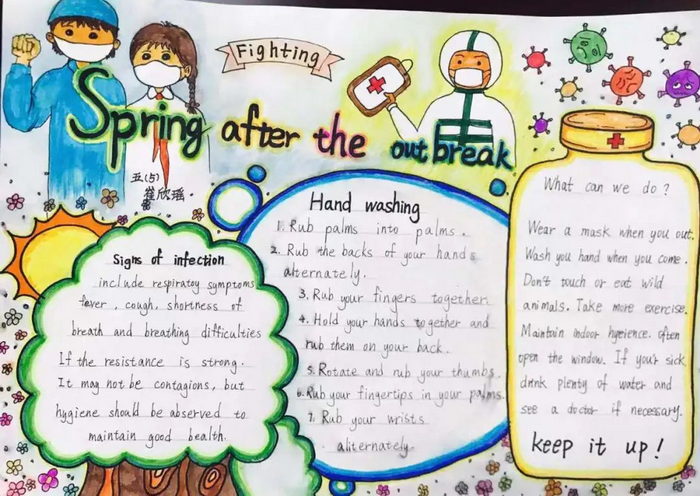 Fighting
Spring after the outbreak
五(5)
崔欣瑶
Signs of infection
include respiratoy symptoms
fever, cough, shortness of
breath and breathing difficulties
If the resistance is strong.
It may not be contagions, but
hygiene should be observed to
maintain good health.
Hand washing
1. Rub palms into palms.
2. Rub the backs of your hands
alternately.
3. Rub your fingers together.
4. Hold your hands together and
rub them on your back.
5. Rotate and rub your thumbs.
6. Rub your fingertips in your palms.
7. Rub your wrists
aliternately.
What can we do?
Wear a mask when you out.
Wash you hand when you come.
Don't touch or eat wild
animals. Take more exercise.
Maintain indoor hyeience. Often
open the window. If your sick
drink plenty of water and
see a doctor if necessary.
keep it up!